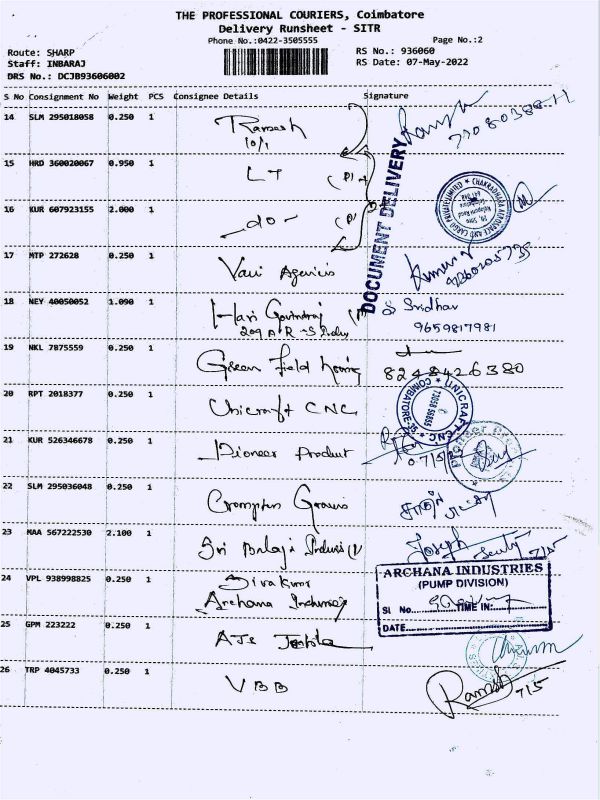 THE PROFESSIONAL COURIERS, Coimbatore
Delivery Runsheet - SITR
Phone No.:0422-3505555 Page No.:2
Route: SHARP RS No.: 936060
Staff: INBARAJ RS Date: 07-May-2022
DRS No.: DCJB93606002
S No Consignment No Weight PCS Consignee Details Signature
14 SLM 295018058 0.250 1 Ramesh
10/1
DOCUMENT DELIVERY
15 HRD 360020067 0.950 1 LT
16 KUR 607923155 2.000 1 -do-
CHAKRADHARA AEROSPACE AND CARGO PRIVATE LIMITED
17 MTP 272628 0.250 1 Vani Agencies Kumar
18 NEY 40050052 1.090 1 Hari Govindraj S Sridhar
209 A 9659817981
19 NKL 7875559 0.250 1 Green Field
8248426380
20 RPT 2018377 0.250 1 Unicraft CNC UNICRAFT CNC
COIMBATORE
21 KUR 526346678 0.250 1 Pioneer Product
22 SLM 295036048 0.250 1 Crompton Greaves
23 MAA 567222530 2.100 1 Sri Balaji Joseph
24 VPL 938998825 0.250 1 Sivakumar
Archana Industries
ARCHANA INDUSTRIES
(PUMP DIVISION)
Sl No. TIME IN:
DATE
25 GPM 223222 0.250 1
26 TRP 4045733 0.250 1 VBB Ramesh 7/5